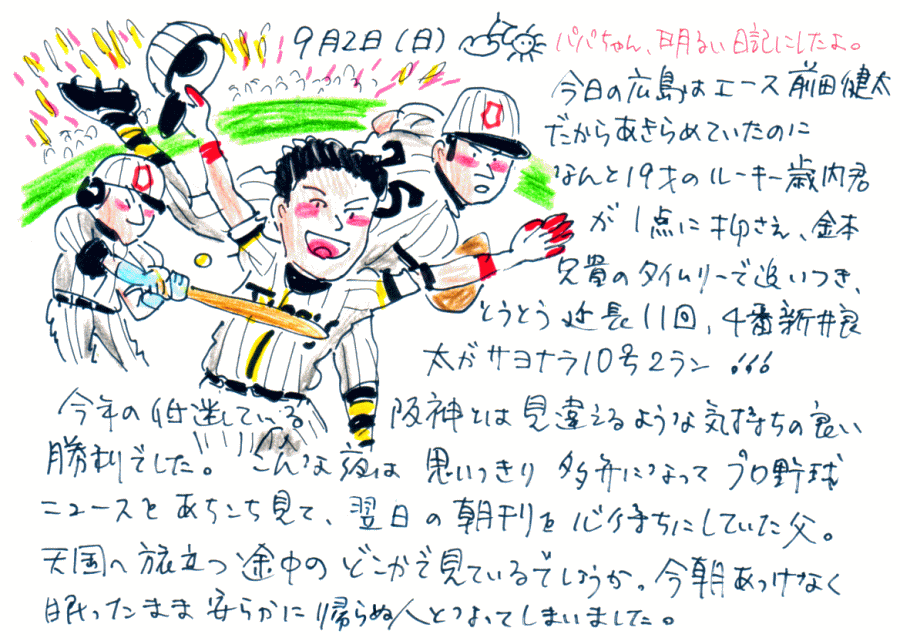 9月2日(日)
パパちゃん、明るい日記にしたよ。
今日の広島はエース前田健太
だからあきらめていたのに
なんと19才のルーキー歳内君
が1点に抑さえ、金本
兄貴のタイムリーで追いつき、
とうとう延長11回、4番新井良
太がサヨナラ10号2ラン!!!
今年の低迷している 阪神とは見違えるような気持ちの良い
勝利でした。こんな夜は思いっきり多弁になってプロ野球
ニュースをあちこち見て、翌日の朝刊を心待ちにしていた父。
天国へ旅立つ途中のどこかで見ているでしょうか。今朝あっけなく
眠ったまま安らかに帰らぬ人となってしまいました。